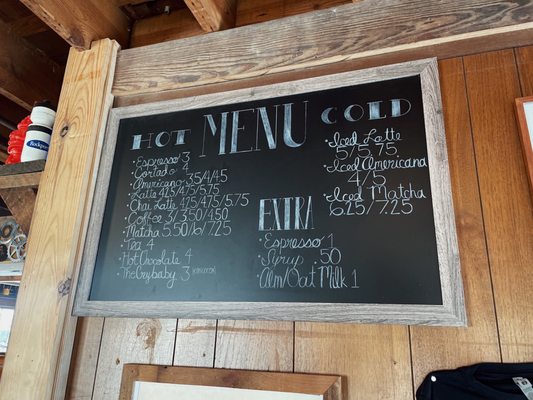 MENU
HOT
Espresso 3
Cortado 4
Americano 3.5/4/4.5
Latte 4.25/4.75/5.75
Chai Latte 4.75/4.75/5.75
Coffee 3/3.50/4.50
Matcha 5.50/6/7.25
Tea 4
Hot Chocolate 4
The Crybaby 3
COLD
Iced Latte
5/5.75
Iced Americana
4/5
Iced Matcha
6.25/7.25
EXTRA
Espresso 1
Syrup .50
Alm/Oat Milk 1